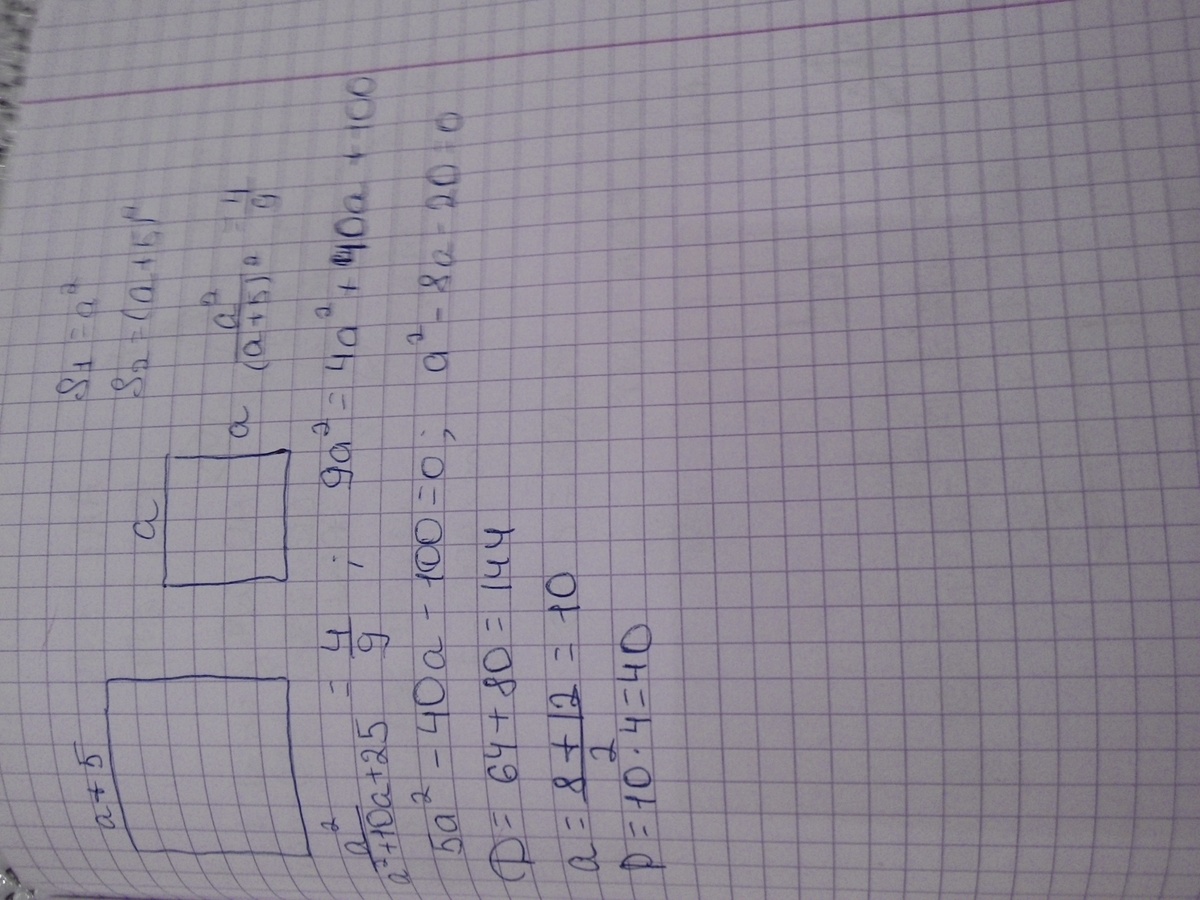 a+5
a
a
S₁ = a²
S₂ = (a+5)²
a²/(a+5)² = 4/9
a²/(a²+10a+25) = 4/9 ; 9a² = 4a² + 40a + 100
5a² - 40a - 100 = 0 ; a² - 8a - 20 = 0
D = 64 + 80 = 144
a = (8+12)/2 = 10
p = 10 · 4 = 40